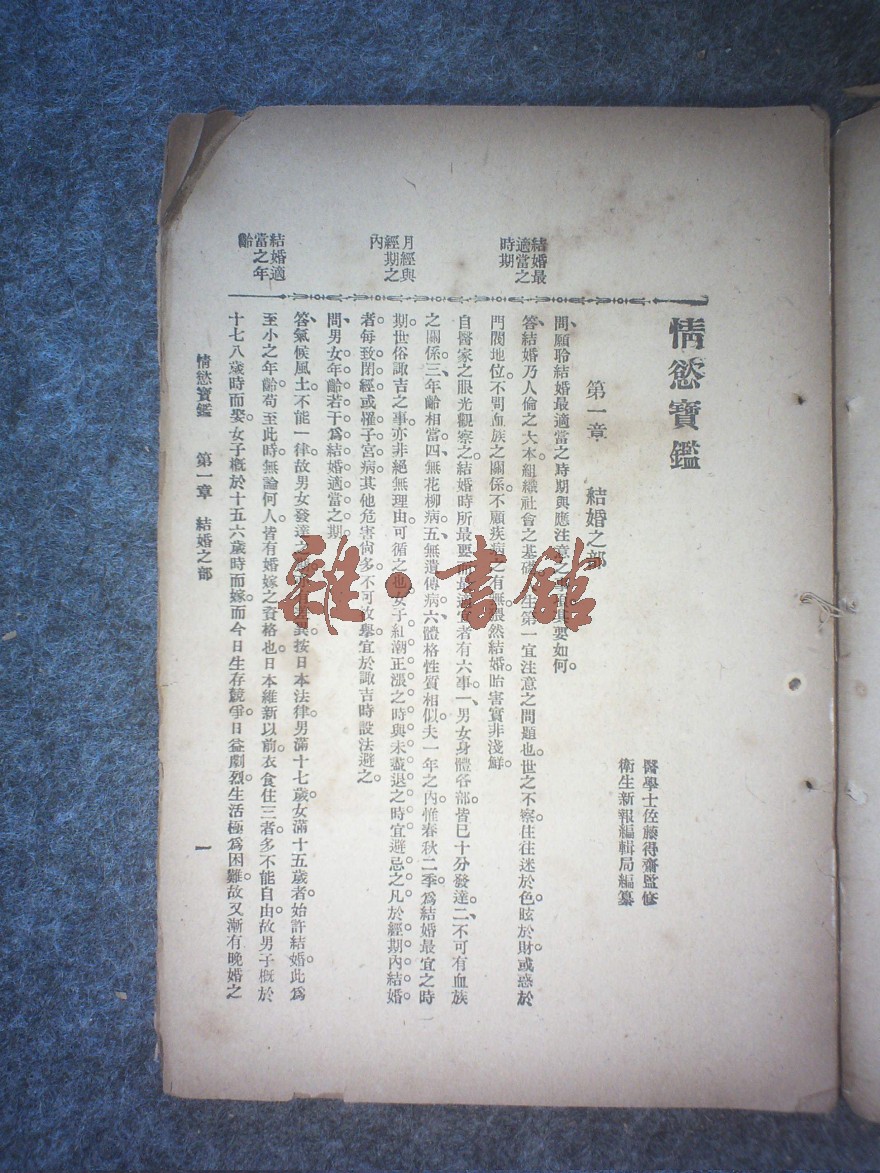 情慾寶鑑
醫學士佐藤得齋監修
衛生新報編輯局編纂
第一章 結婚之部
結婚最適當之時期
問、願聆結婚最適當之時期與應注意之
要如何。
答、結婚乃人倫之大本。組織社會之基礎。
生第一宜注意之問題也。世之不察。往往迷於色。眩於財。或惑於
門閥地位。不問血族之關係。不顧疾病之有
然結婚。貽害實非淺鮮。
自醫家之眼光觀察之。結婚時所最要
者有六事。一、男女身體各部皆已十分發達。二、不可有血族
之關係。三、年齡相當。四、無花柳病。五、無遺傳病。六、體格性質相似。夫一年之內。惟春秋二季。爲結婚最宜之時
月經與經期之內
期。世俗諏吉之事。亦非絕無理由。可循之也。女子紅潮正漲之時。與未盡退之時。宜避忌之。凡於經期內結婚
者。每致閉經。或罹子宮病。其他危害尙多。不可
擧。宜於諏吉時設法避之。
問、男女年齡若干。爲結婚適當之期。
結婚適當之年齡
答、氣候風土。不能一律。故男女發達之
按日本法律。男滿十七歲。女滿十五歲者。始許結婚。此爲
至小之年齡。苟至此時。無論何人。皆有婚嫁之資格也。日本維新以前。衣食住三者。多不能自由。故男子概於
十七八歲時而娶。女子概於十五六歲時而嫁。而今日生存競爭。日益劇烈。生活極爲困難。故又漸有晚婚之
情慾寶鑑 第一章 結婚之部
一
雜·書館